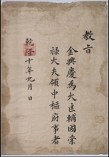 教旨
金興慶爲大匡輔國崇
祿大夫領中樞府事者
乾隆十年九月 日